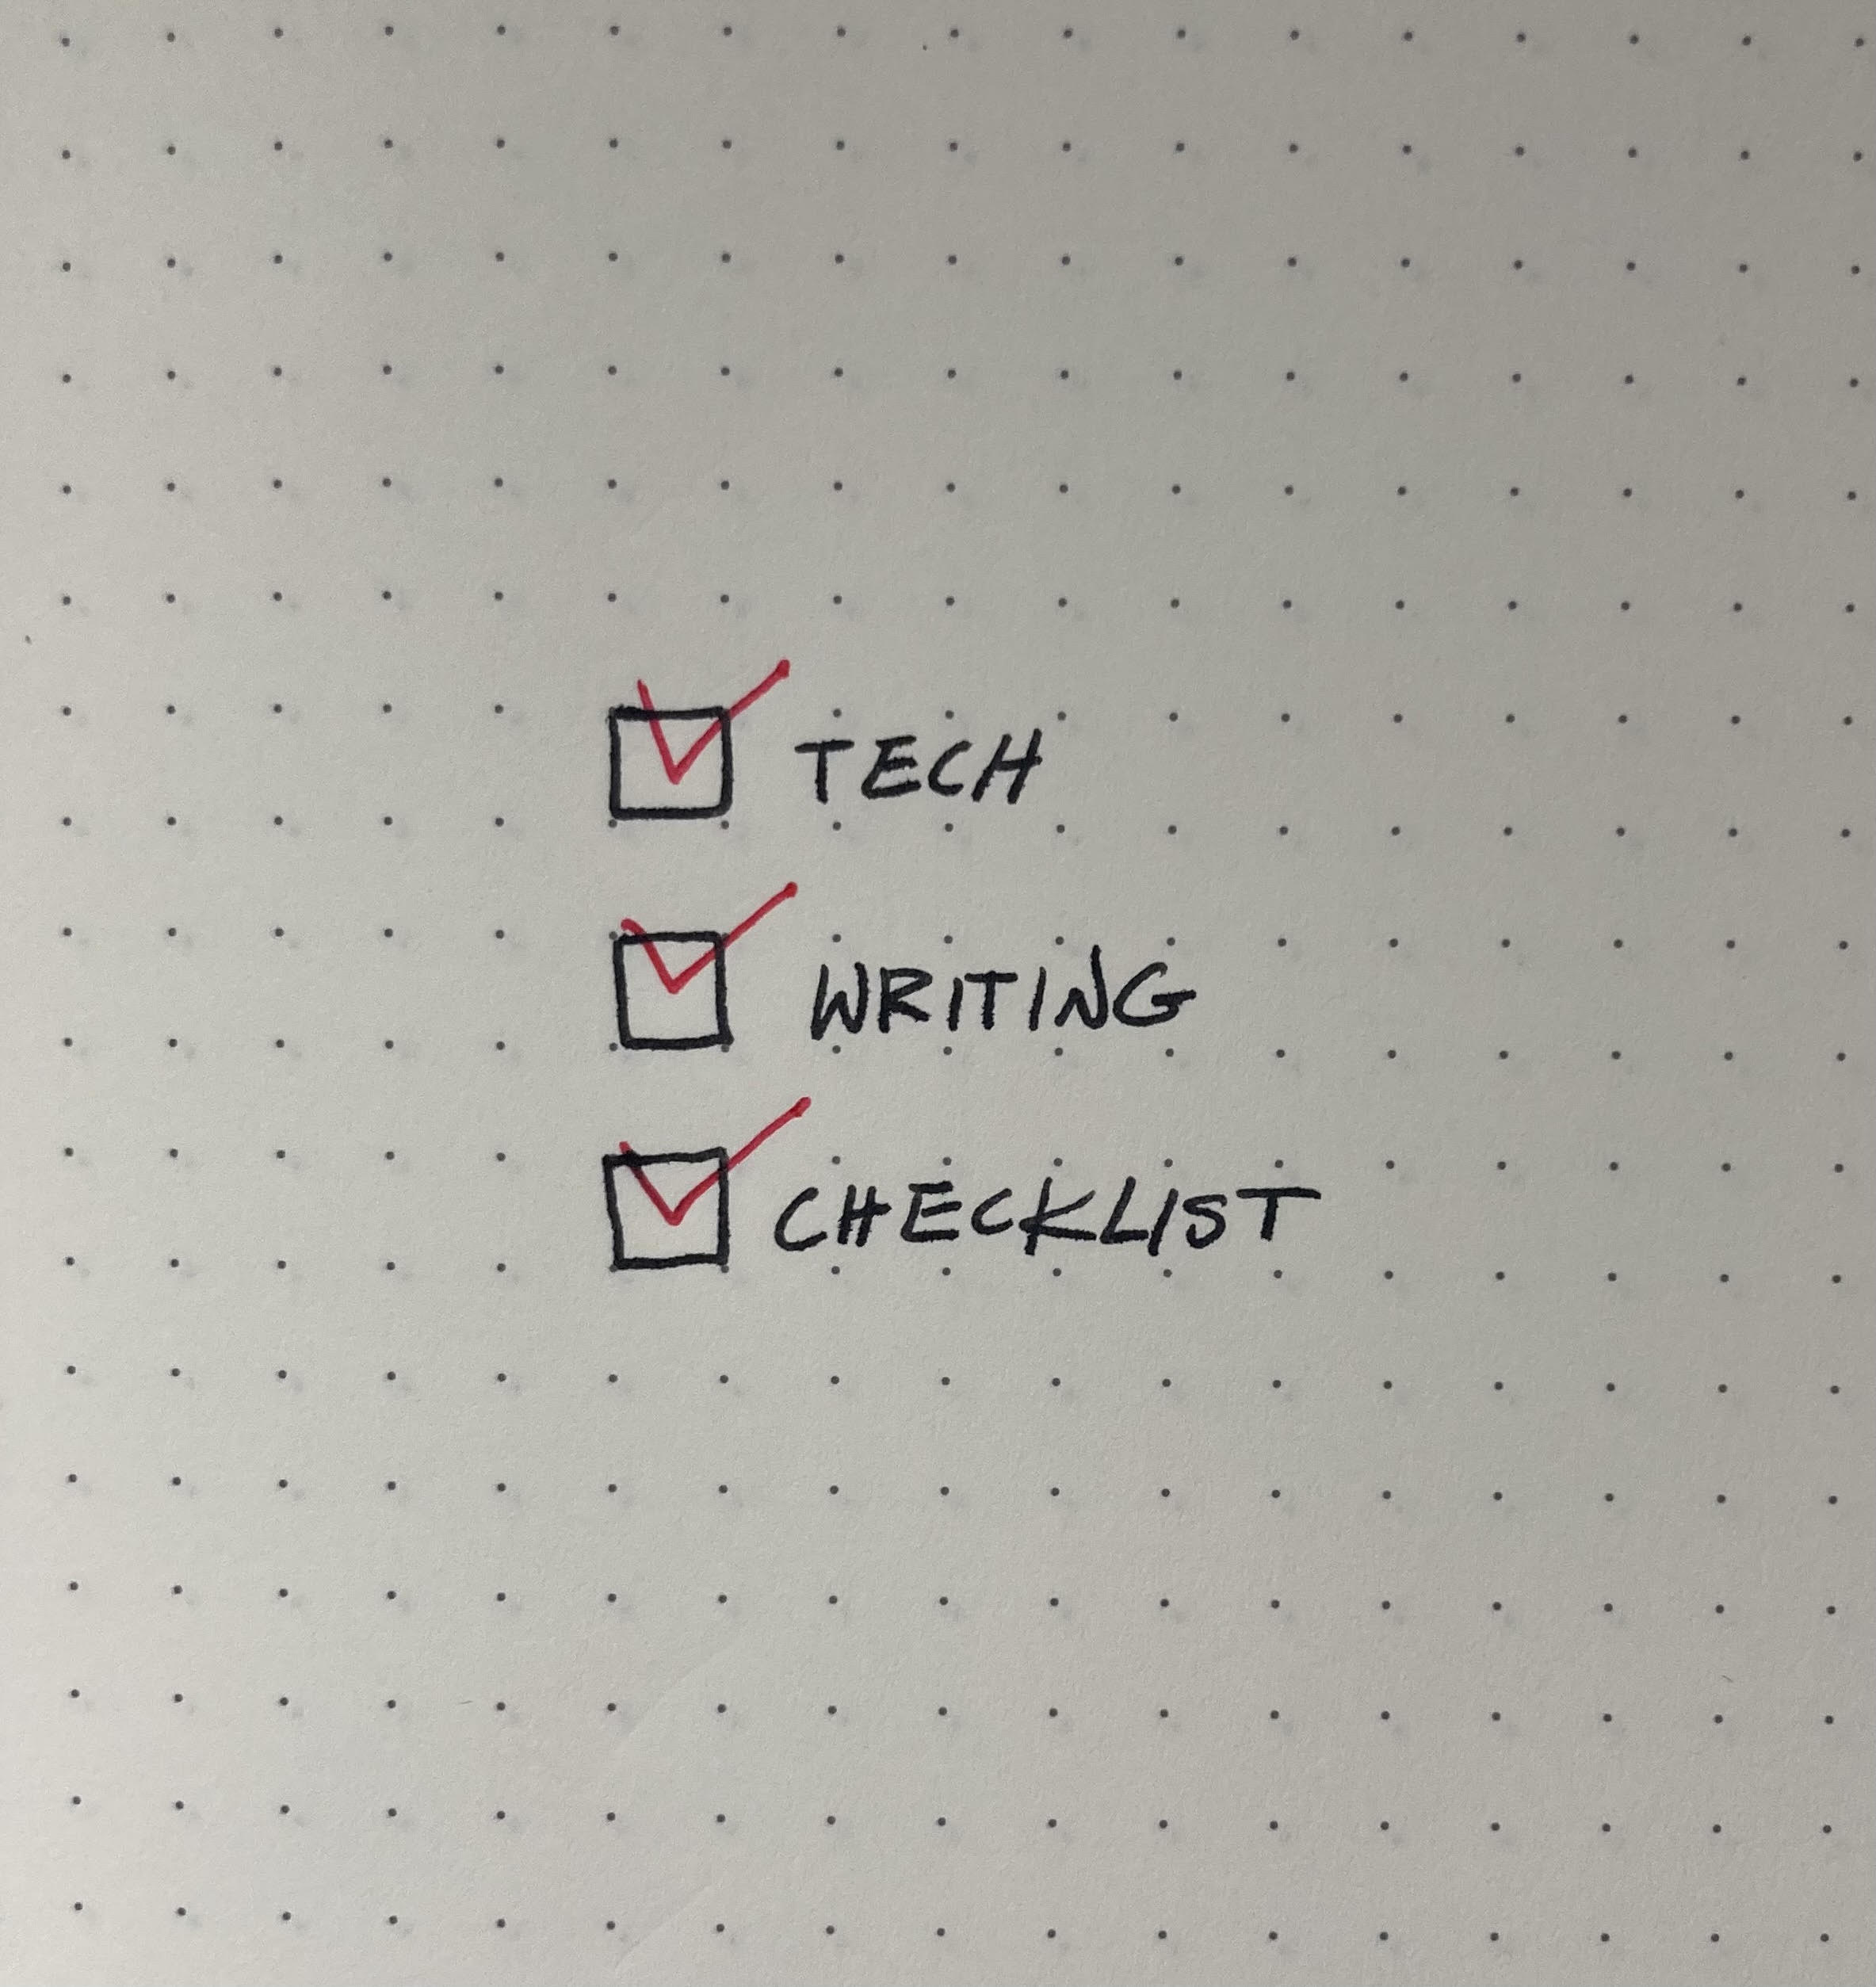 TECH
WRITING
CHECKLIST